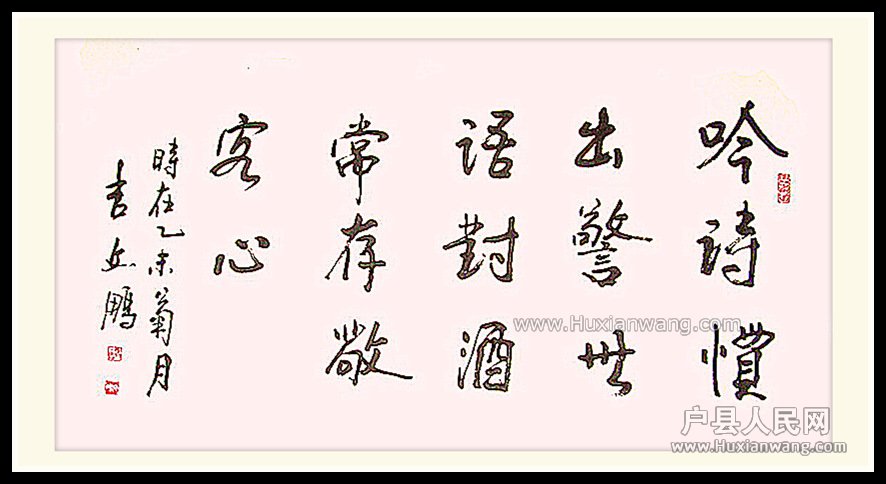 吟詩慣
出警世
語對酒
常存敬
客心
時在乙未菊月
鵬
www.Huxianwang.com
户县人民网
www.Huxianwang.com